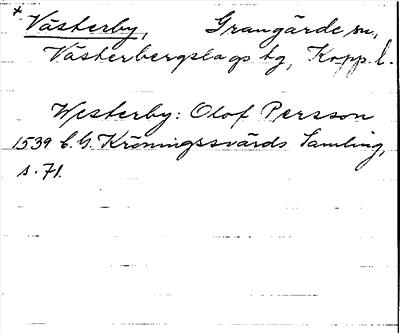 + Västerby, Grangärde sn,
Västerbergslags tg, Kopp. l.
Westerby: Olof Persson
1539 C. G. Kröningssvärds Samling,
s. 71.